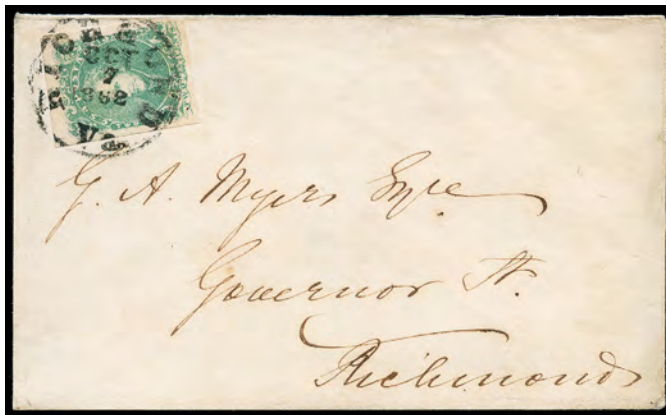 RICHMOND
OCT
7
1862
VA.
G. A. Myers Esqe
Governor St.
Richmond